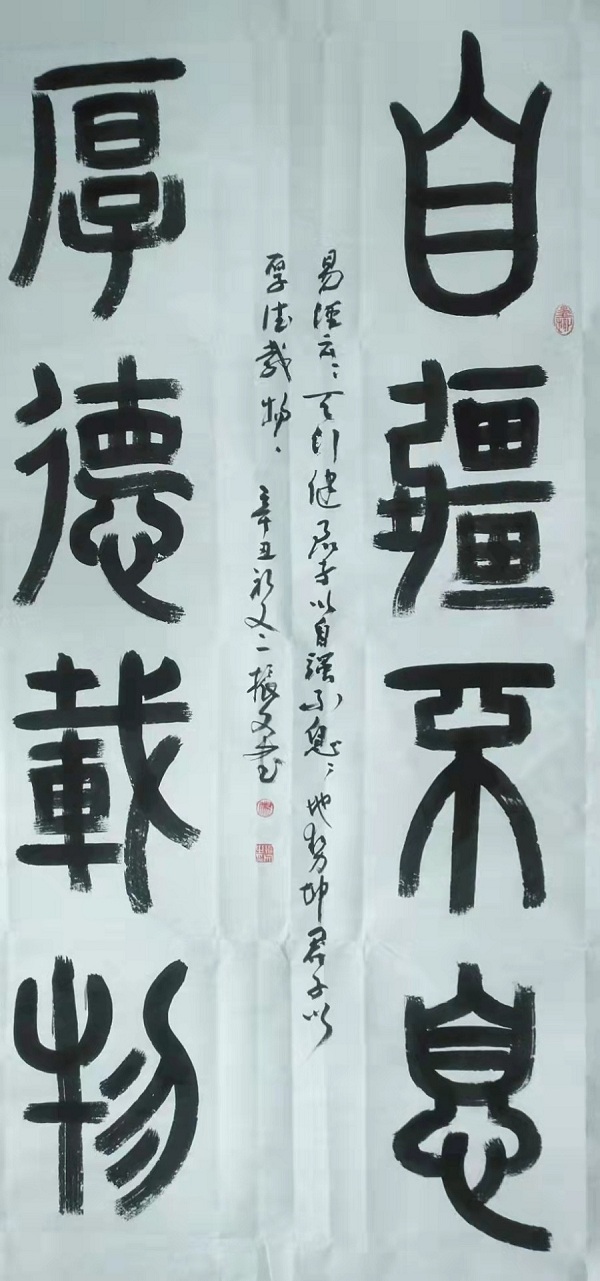 自疆不息
易经云：天行健君子以自强不息；地势坤君子以
厚德载物。
辛丑初又二振文书
厚德載物